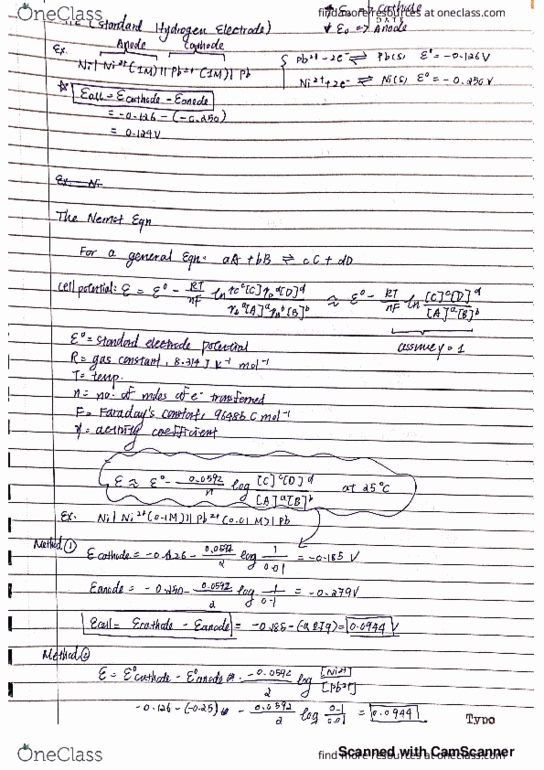 OneClass
find more resources at oneclass.com
(Standard Hydrogen Electrode)
↑ E₀ → Cathode
↓ E₀ → Anode
DATE
Ex. Anode Cathode
Ni | Ni²⁺ (1M) || Pb²⁺ (1M) | Pb
Pb²⁺ - 2e⁻ ⇌ Pb(s) E° = -0.126V
Ni²⁺ + 2e⁻ ⇌ Ni(s) E° = -0.250V
Ecell = Ecathode - Eanode
= -0.126 - (-0.250)
= 0.124V
Ex. Ni
The Nernst Eqn
For a general Eqn: aA + bB ⇌ cC + dD
cell potential: E = E° - RT/nF ln γc^c[C]γD^d[D]^d / γA^a[A]^a γB^b[B]^b ≈ E° - RT/nF ln [C]^c[D]^d / [A]^a[B]^b
assume γ = 1
E° = standard electrode potential
R = gas constant, 8.314 J K⁻¹ mol⁻¹
T = temp.
n = no. of moles of e⁻ transferred
F = Faraday's constant, 96486 C mol⁻¹
γ = activity coefficient
E ≈ E° - 0.0592/n log [C]^c[D]^d / [A]^a[B]^b at 25°C
Ex. Ni | Ni²⁺ (0.1M) || Pb²⁺ (0.01M) | Pb
Method ①
Ecathode = -0.126 - 0.0592/2 log 1/0.01 = -0.185 V
Eanode = -0.250 - 0.0592/2 log 1/0.1 = -0.279V
Ecell = Ecathode - Eanode = -0.185 - (-0.279) = 0.0944 V
Method ②
E = E°cathode - E°anode - 0.0592/2 log [Ni²⁺]/[Pb²⁺]
-0.126 - (-0.25) - 0.0592/2 log 0.1/0.01 = 0.0944
Typo
Scanned with CamScanner
OneClass
find more resources at oneclass.com